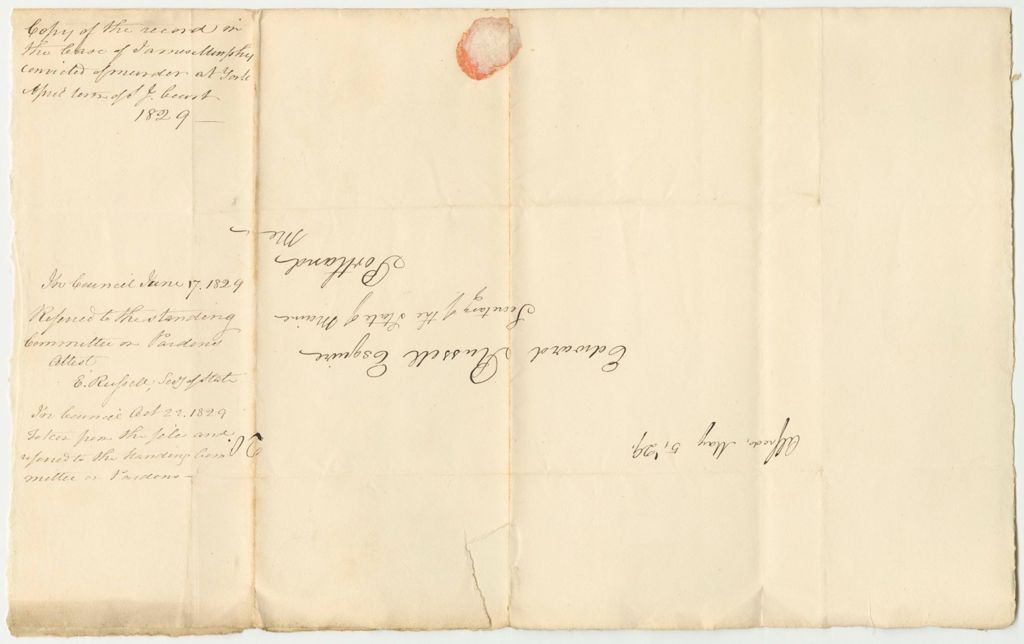 Copy of the record in
the Case of James Murphy
convicted of murder at York
April term of S. J. Court
1829
In Council June 17. 1829
Referred to the standing
Committee on Pardons
Attest
E. Russell, Secy of State
In Council Oct 22. 1829
Taken from the files and
refered to the standing Com
mittee on Pardons
Alfred, May 5, '29.
Edward Russell Esquire
Secretary of the State of Maine
Portland,
Me